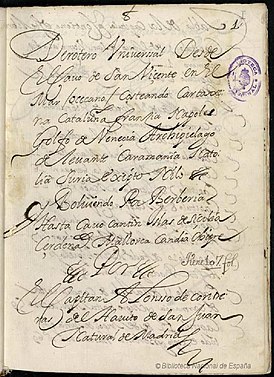 8
1
Derotero Universal Desde
El Cavo de San Vicente en El
Mar oceano / Costeando Cartaxe
na Cataluña Francia Napoles
Golfo de Venecia Archipielago
de Levante Caramania Nato
lia Suria Exipto
y Bolviendo Por Berberia
Hasta Cavo Cantin Islas de Sicilia
Cerdeña Mallorca Candia Chipre
Tiene 107 fol
Por
El Capitan Alonso de contre
ras del Havito de San Juan
Natural de Madrid
© Biblioteca Nacional de España